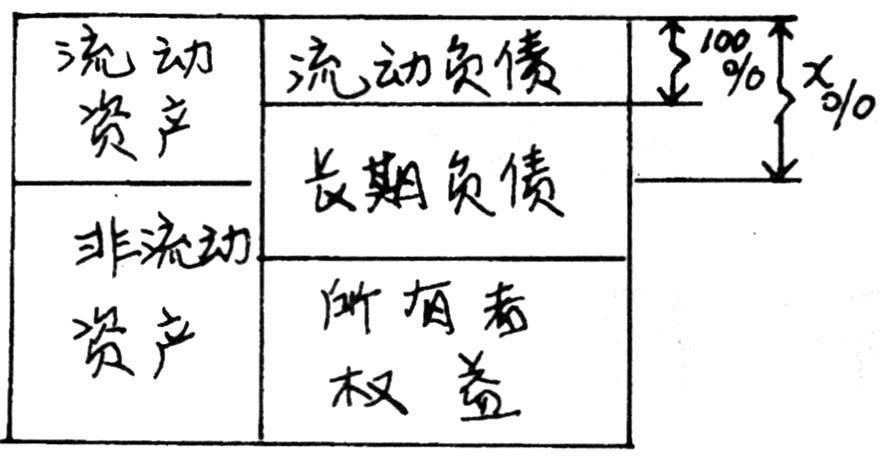 流动
资产
非流动
资产
流动负债
长期负债
所有者
权益
100
%
x
%